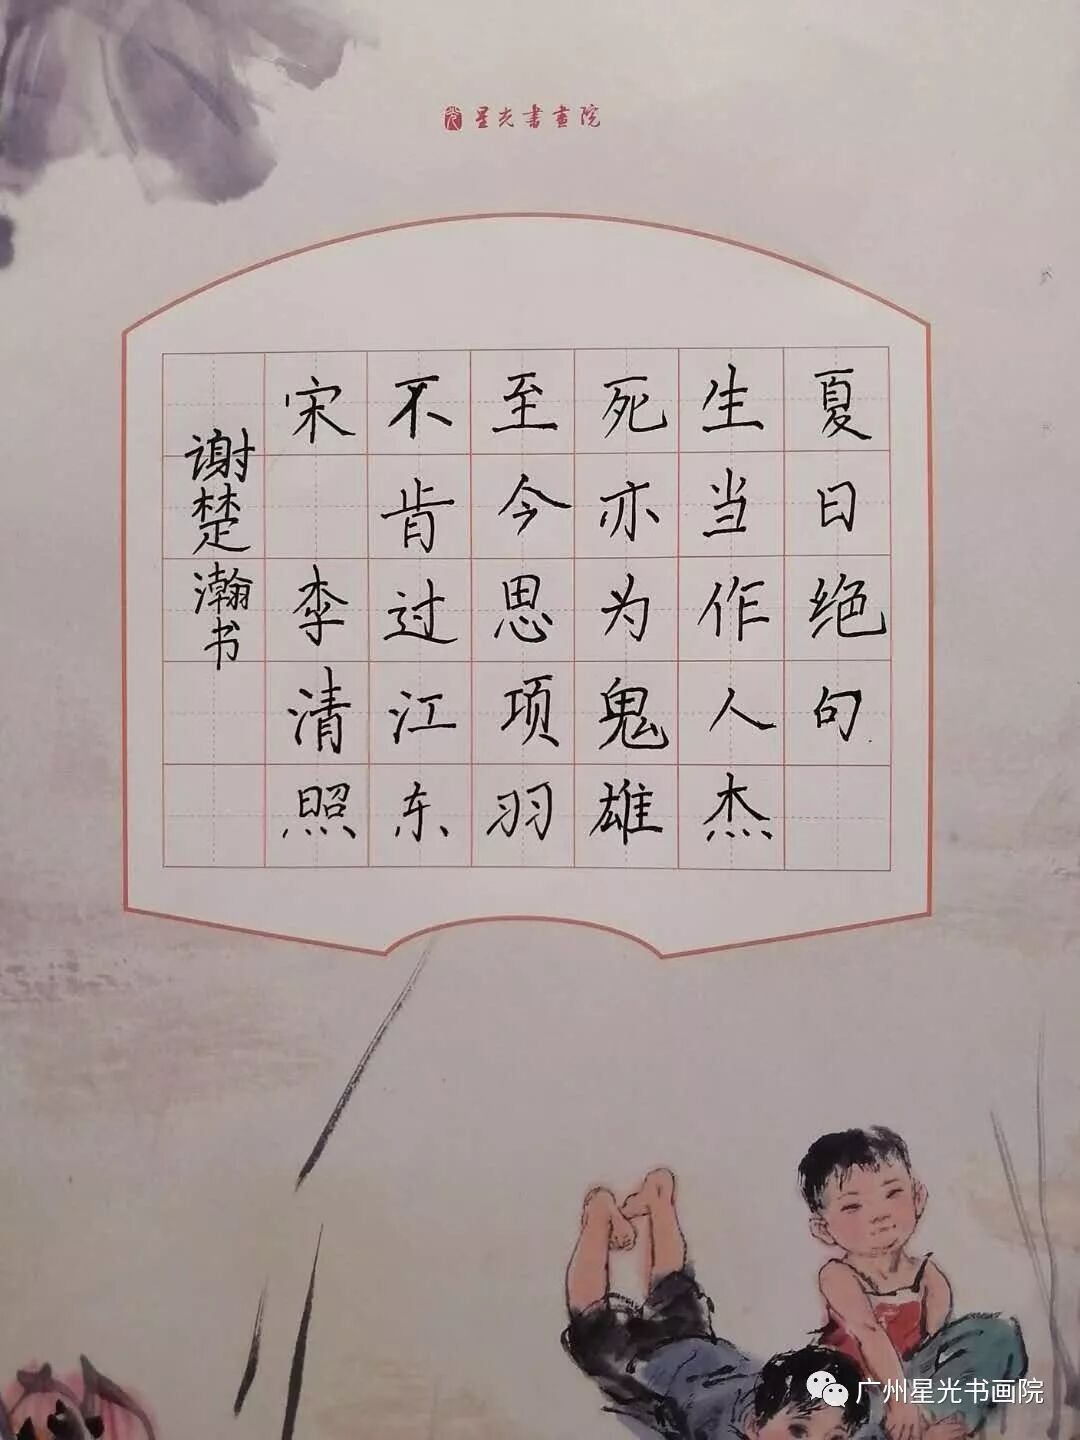 星光书画院
夏日绝句
生当作人杰
死亦为鬼雄
至今思项羽
不肯过江东
宋 李清照
谢楚瀚书
广州星光书画院